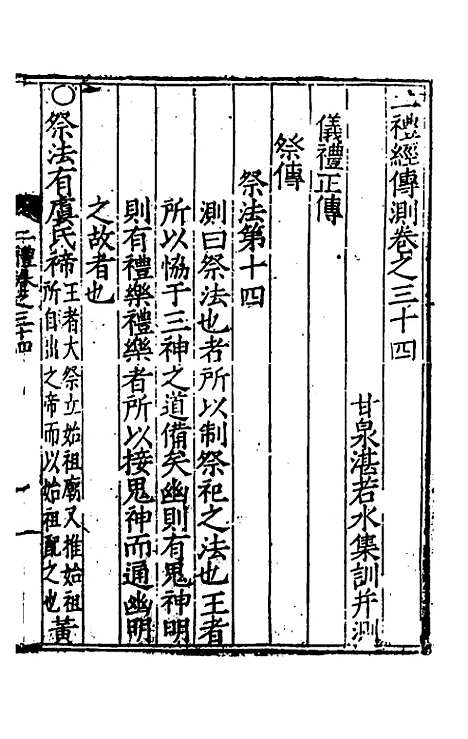 二禮經傳測卷之三十四
甘泉湛若水集訓并測
儀禮正傳
祭傳
祭法第十四
測曰祭法也者所以制祭祀之法也王者
所以恊于三神之道備矣幽則有鬼神明
則有禮樂禮樂者所以接鬼神而通幽明
之故者也
○祭法有虞氏禘王者大祭立始祖廟又推始祖所自出之帝而以始祖配之也黃
二禮卷之三十四
一